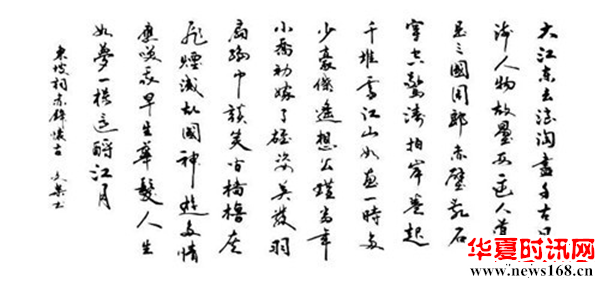 大江東去浪淘盡千古風
流人物故壘西邊人道
是三國周郎赤壁亂石
穿空驚濤拍岸卷起
千堆雪江山如畫一時多
少豪傑遙想公瑾當年
小喬初嫁了雄姿英發羽
扇綸巾談笑間檣櫓灰
飛煙滅故國神遊多情
應笑我早生華髮人生
如夢一樽還酹江月
東坡詞赤壁懷古
华夏时讯网
www.news168.cn